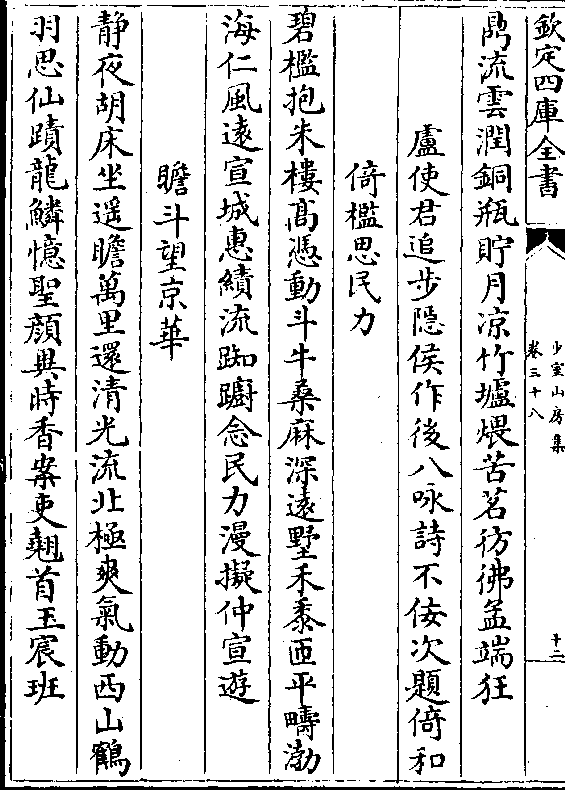 欽定四庫全書
少室山房集
卷三十八
十二
鸕流雲潤銅瓶貯月凉竹壚煨苦茗彷彿孟端狂
盧使君追步隱侯作後八咏詩不佞次題倚和
倚檻思民力
碧檻抱朱樓髙憑動斗牛桑麻深遠墅禾黍匝平疇渤
海仁風遠宣城惠績流踟躕念民力漫擬仲宣遊
瞻斗望京華
静夜胡床坐遥瞻萬里還清光流北極爽氣動西山鶴
羽思仙蹟龍鱗憶聖顔異時香案吏翹首玉宸班